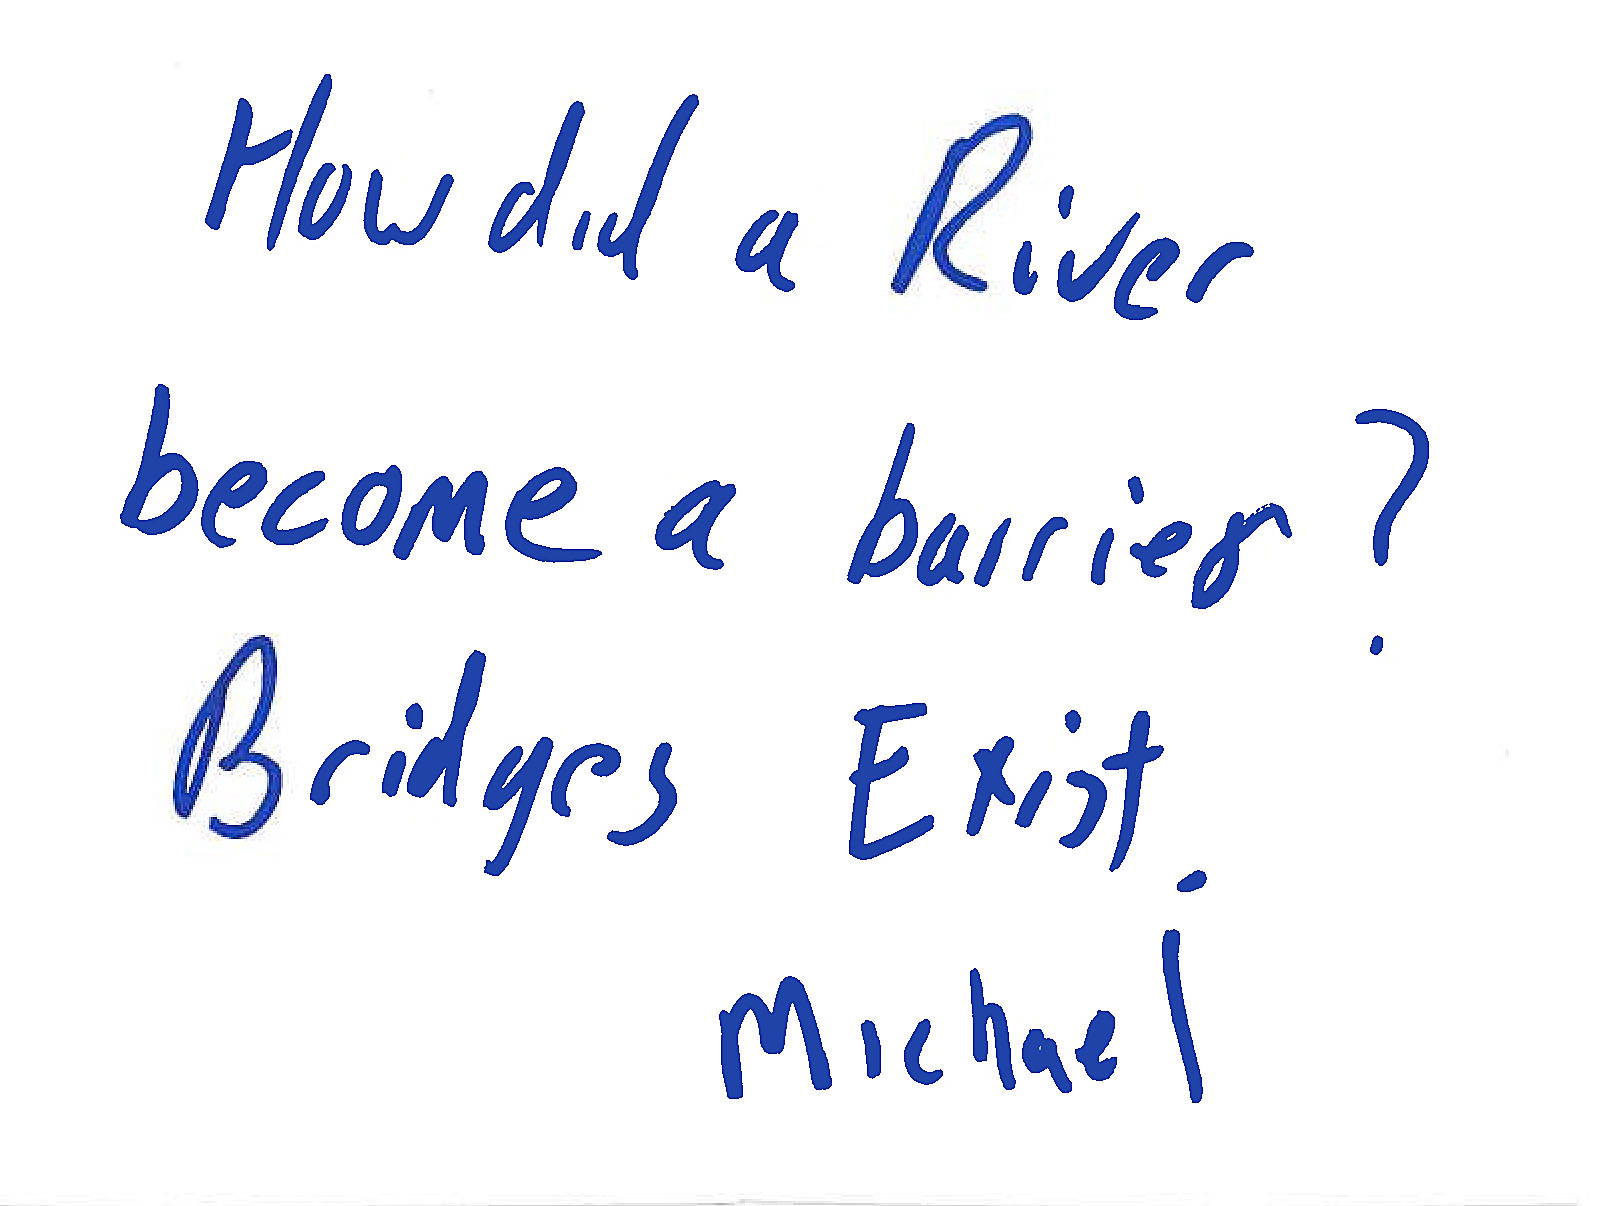 How did a River
become a barrier?
Bridges Exist.
Michael